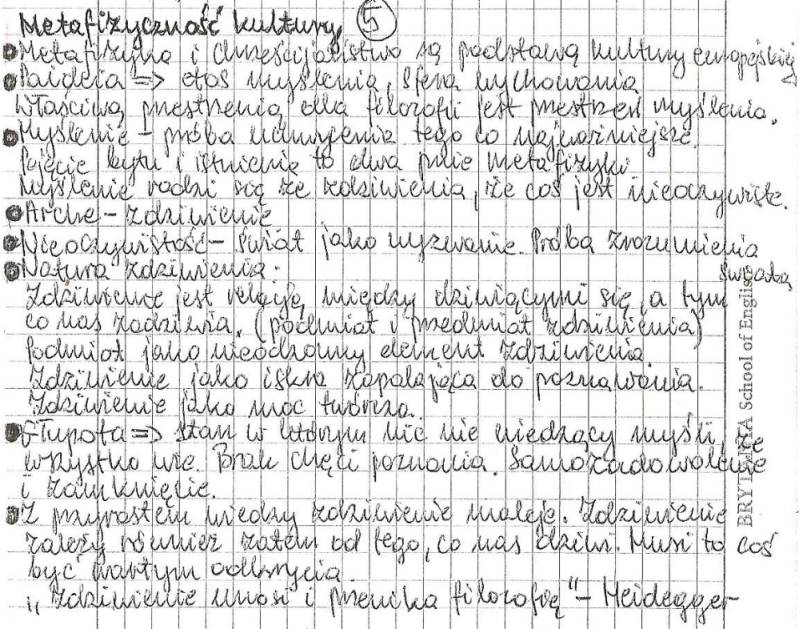 Metafizyczność kultury 5
Metafizyka i chrześcijaństwo są podstawą kultury europejskiej
Paideia => etos myślenia, sfera wychowania
Właściwą przestrzenią dla filozofii jest przestrzeń myślenia.
Myślenie - próba uchwycenia tego co najważniejsze.
Pojęcie bytu i istnienie to dwa pnie metafizyki
Myślenie rodzi się ze zdziwienia, że coś jest nieoczywiste.
Arche - zdziwienie
Nieoczywistość - świat jako wyzwanie. Próba zrozumienia świata
Natura zdziwienia.
Zdziwienie jest relacją między dziwiącymi się, a tym
co nas zadziwia. (podmiot i przedmiot zdziwienia)
Podmiot jako nieodzowny element zdziwienia
Zdziwienie jako iskra zapalająca do poznawania.
Zdziwienie jako moc twórcza.
Głupota => stan w którym nic nie wiedzący myśli, że
wszystko wie. Brak chęci poznania. Samozadowolenie
i zamknięcie.
Z przyrostem wiedzy zdziwienie maleje. Zdziwienie
zależy również zatem od tego, co nas dziwi. Musi to coś
być wartym odkrycia.
„Zdziwienie unosi i przenika filozofię" - Heidegger
BRYTANIA School of English